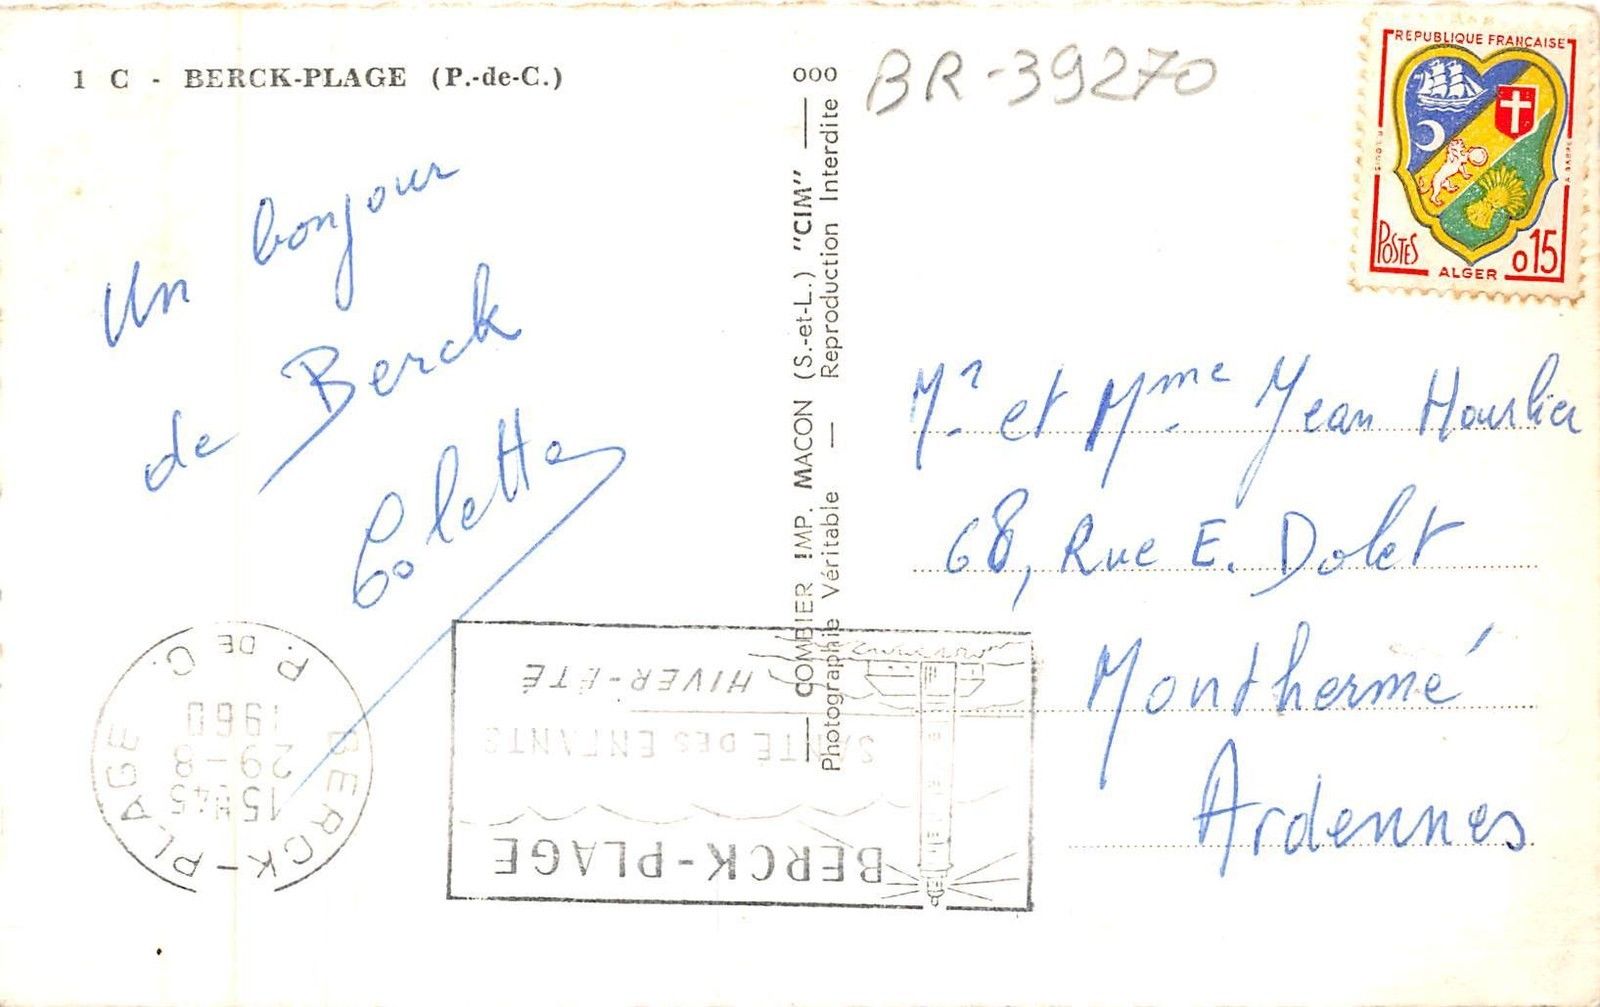 1 C - BERCK-PLAGE (P.-de-C.)
Un bonjour
de Berck
Colette
BERCK-PLAGE
P. DE C.
15H45
29-8
1960
BERCK-PLAGE
SANTÉ DES ENFANTS
HIVER-ÉTÉ
COMBIER IMP. MACON (S.-et-L.) "CIM"
Photographie Véritable — Reproduction Interdite
000
BR-39270
REPUBLIQUE FRANÇAISE
POSTES
ALGER
0,15
Mr. et Mme Jean Hourlier
68, Rue E. Dolet
Monthermé
Ardennes